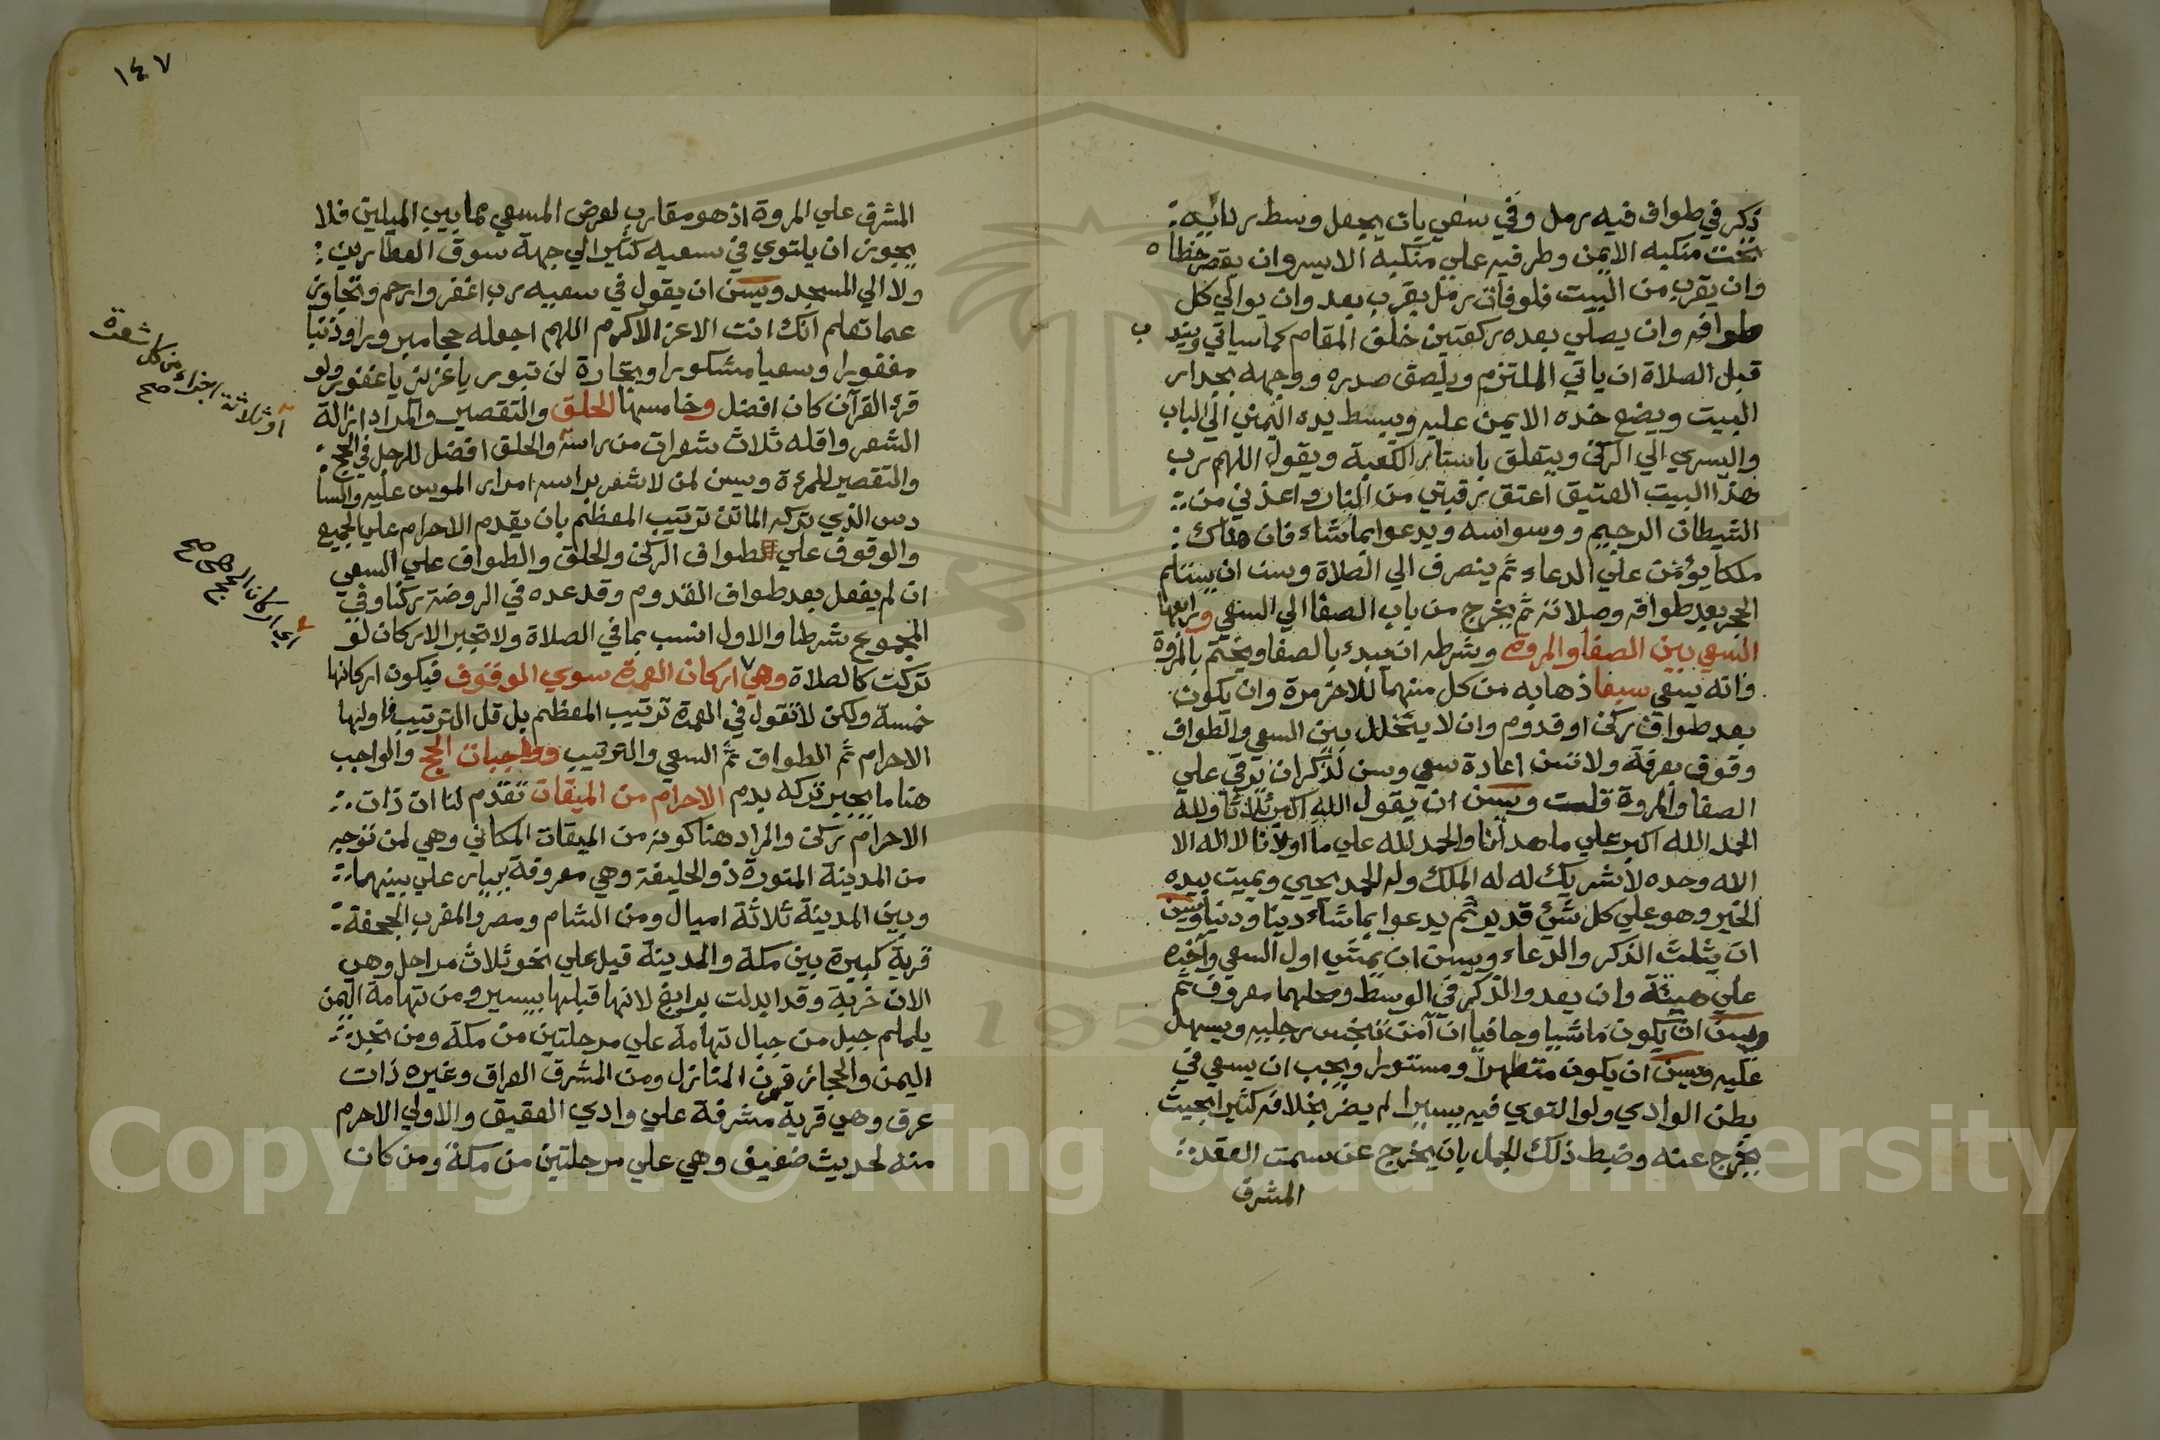 ذكر في طواف فيه رمل وفي سعي بان يجعل وسط ردائه
تحت منكبه الايمن وطرفيه علي منكبه الايسر وان يقصر خطاه
وان يقرب من البيت فلو فات رمل بقرب بعد وان يوالي كل
طوافه وان يصلي بعده ركعتين خلف المقام كما سياتي ويندب
قبل الصلاة ان ياتي الملتزم ويلصق صدره ووجهه بجدار
البيت ويضع خده الايمن عليه ويبسط يده اليمني الي الباب
واليسري الي الركن ويتعلق باستار الكعبة ويقول اللهم رب
هذا البيت العتيق اعتق رقبتي من النار واعذني من
الشيطان الرجيم ووسواسه ويدعوا بما شاء فان هناك
ملكا يؤمن علي الدعاء ثم ينصرف الي الصلاة وسن ان يستلم
الحجر بعد طوافه وصلاته ثم يخرج من باب الصفا الي السعي ورابعها
السعي بين الصفا والمروة وشرطه ان يبدء بالصفا ويختم بالمروة
وانه يسعي سبعا ذهابه من كل منهما للاخر مرة وان يكون
بعد طواف ركن او قدوم وان لا يتخلل بين السعي والطواف
وقوف بعرفة ولا تسن اعادة سعي وسن لذكر ان يرقي علي
الصفا والمروة قامت ويسن ان يقول الله اكبر ثلاثا ولله
الحمد الله اكبر علي ما هدانا والحمد لله علي ما اولانا لا اله الا
الله وحده لا شريك له له الملك وله الحمد يحيي ويميت بيده
الخير وهو علي كل شئ قدير ثم يدعوا بما شاء دينا ودنيا ويسن
ان يثلث الذكر والدعاء ويسن ان يمشي اول السعي واخره
علي هينة وان يعدو الذكر في الوسط ومحلهما معروف ثم
ويسن ان يكون ماشيا وحافيا ان آمن تنجس رجليه ويسهل
عليه ويسن ان يكون متطهرا ومستورا ويجب ان يسعي في
بطن الوادي ولو التوي فيه يسيرا لم يضر بخلافه كثيرا بحيث
يخرج عنه وضبط ذلك الجمل بان يخرج عن سمت العقد
المشرف
١٤٧
المشرف علي المروة اذ هو مقارب لعرض المسعي مما بين الميلين فلا
يجوز ان يلتوي في سعيه كثيرا الي جهة سوق العطارين
ولا الي المسجد ويسن ان يقول في سعيه رب اغفر وارحم وتجاوز
عما تعلم انك انت الاعز الاكرم اللهم اجعله حجا مبرورا وذنبا
مغفورا وسعيا مشكورا وتجارة لن تبور يا عزيز يا غفور ولو
قرء القرآن كان افضل وخامسها الحلق والتقصير والمراد ازالة
الشعر واقله ثلاث شعرات من راسه والحلق افضل للرجل في الحج
والتقصير للمرءة ويسن لمن لا شعر براسه امرار الموس عليه والسا
دس الذي تركه الماتن ترتيب المعظم بان يقدم الاحرام علي الجميع
والوقوف علي الطواف الركن والحلق والطواف علي السعي
ان لم يفعل بعد طواف القدوم وقد عده في الروضة ركنا وفي
المجموع شرطا والاول انسب بما في الصلاة ولا تجبر الاركان لو
تركت كالصلاة وهي اركان العمرة سوي الوقوف فيكون اركانها
خمسة ولكن لا نقول في العمرة ترتيب المعظم بل قل الترتيب فاولها
الاحرام ثم الطواف ثم السعي والترتيب وواجبات الحج والواجب
هنا ما يجبر تركه بدم الاحرام من الميقات تقدم لنا ان ذات
الاحرام ركن والمراد هنا كونه من الميقات المكاني وهي لمن توجه
من المدينة المنورة ذو الحليفة وهي معروفة ببيار علي بينهما
وبين المدينة ثلاثة اميال ومن الشام ومصر والمغرب الجحفة
قرية كبيرة بين مكة والمدينة قيل علي نحو ثلاث مراحل وهي
الان خربة وقد ابدلت برابغ لانها قبلها بيسير ومن تهامة اليمن
يلملم جبل من جبال تهامة علي مرحلتين من مكة ومن نجد
اليمن والحجاز قرن المنازل ومن المشرق العراق وغيره ذات
عرق وهي قرية مشرفة علي وادي العقيق والاولي الاحرم
منه لحديث ضعيف وهي علي مرحلتين من مكة ومن كان
او ثلاثة اجزاء من كل شعرة صح
اي اركان الحج صح
Copyright © King Saud University